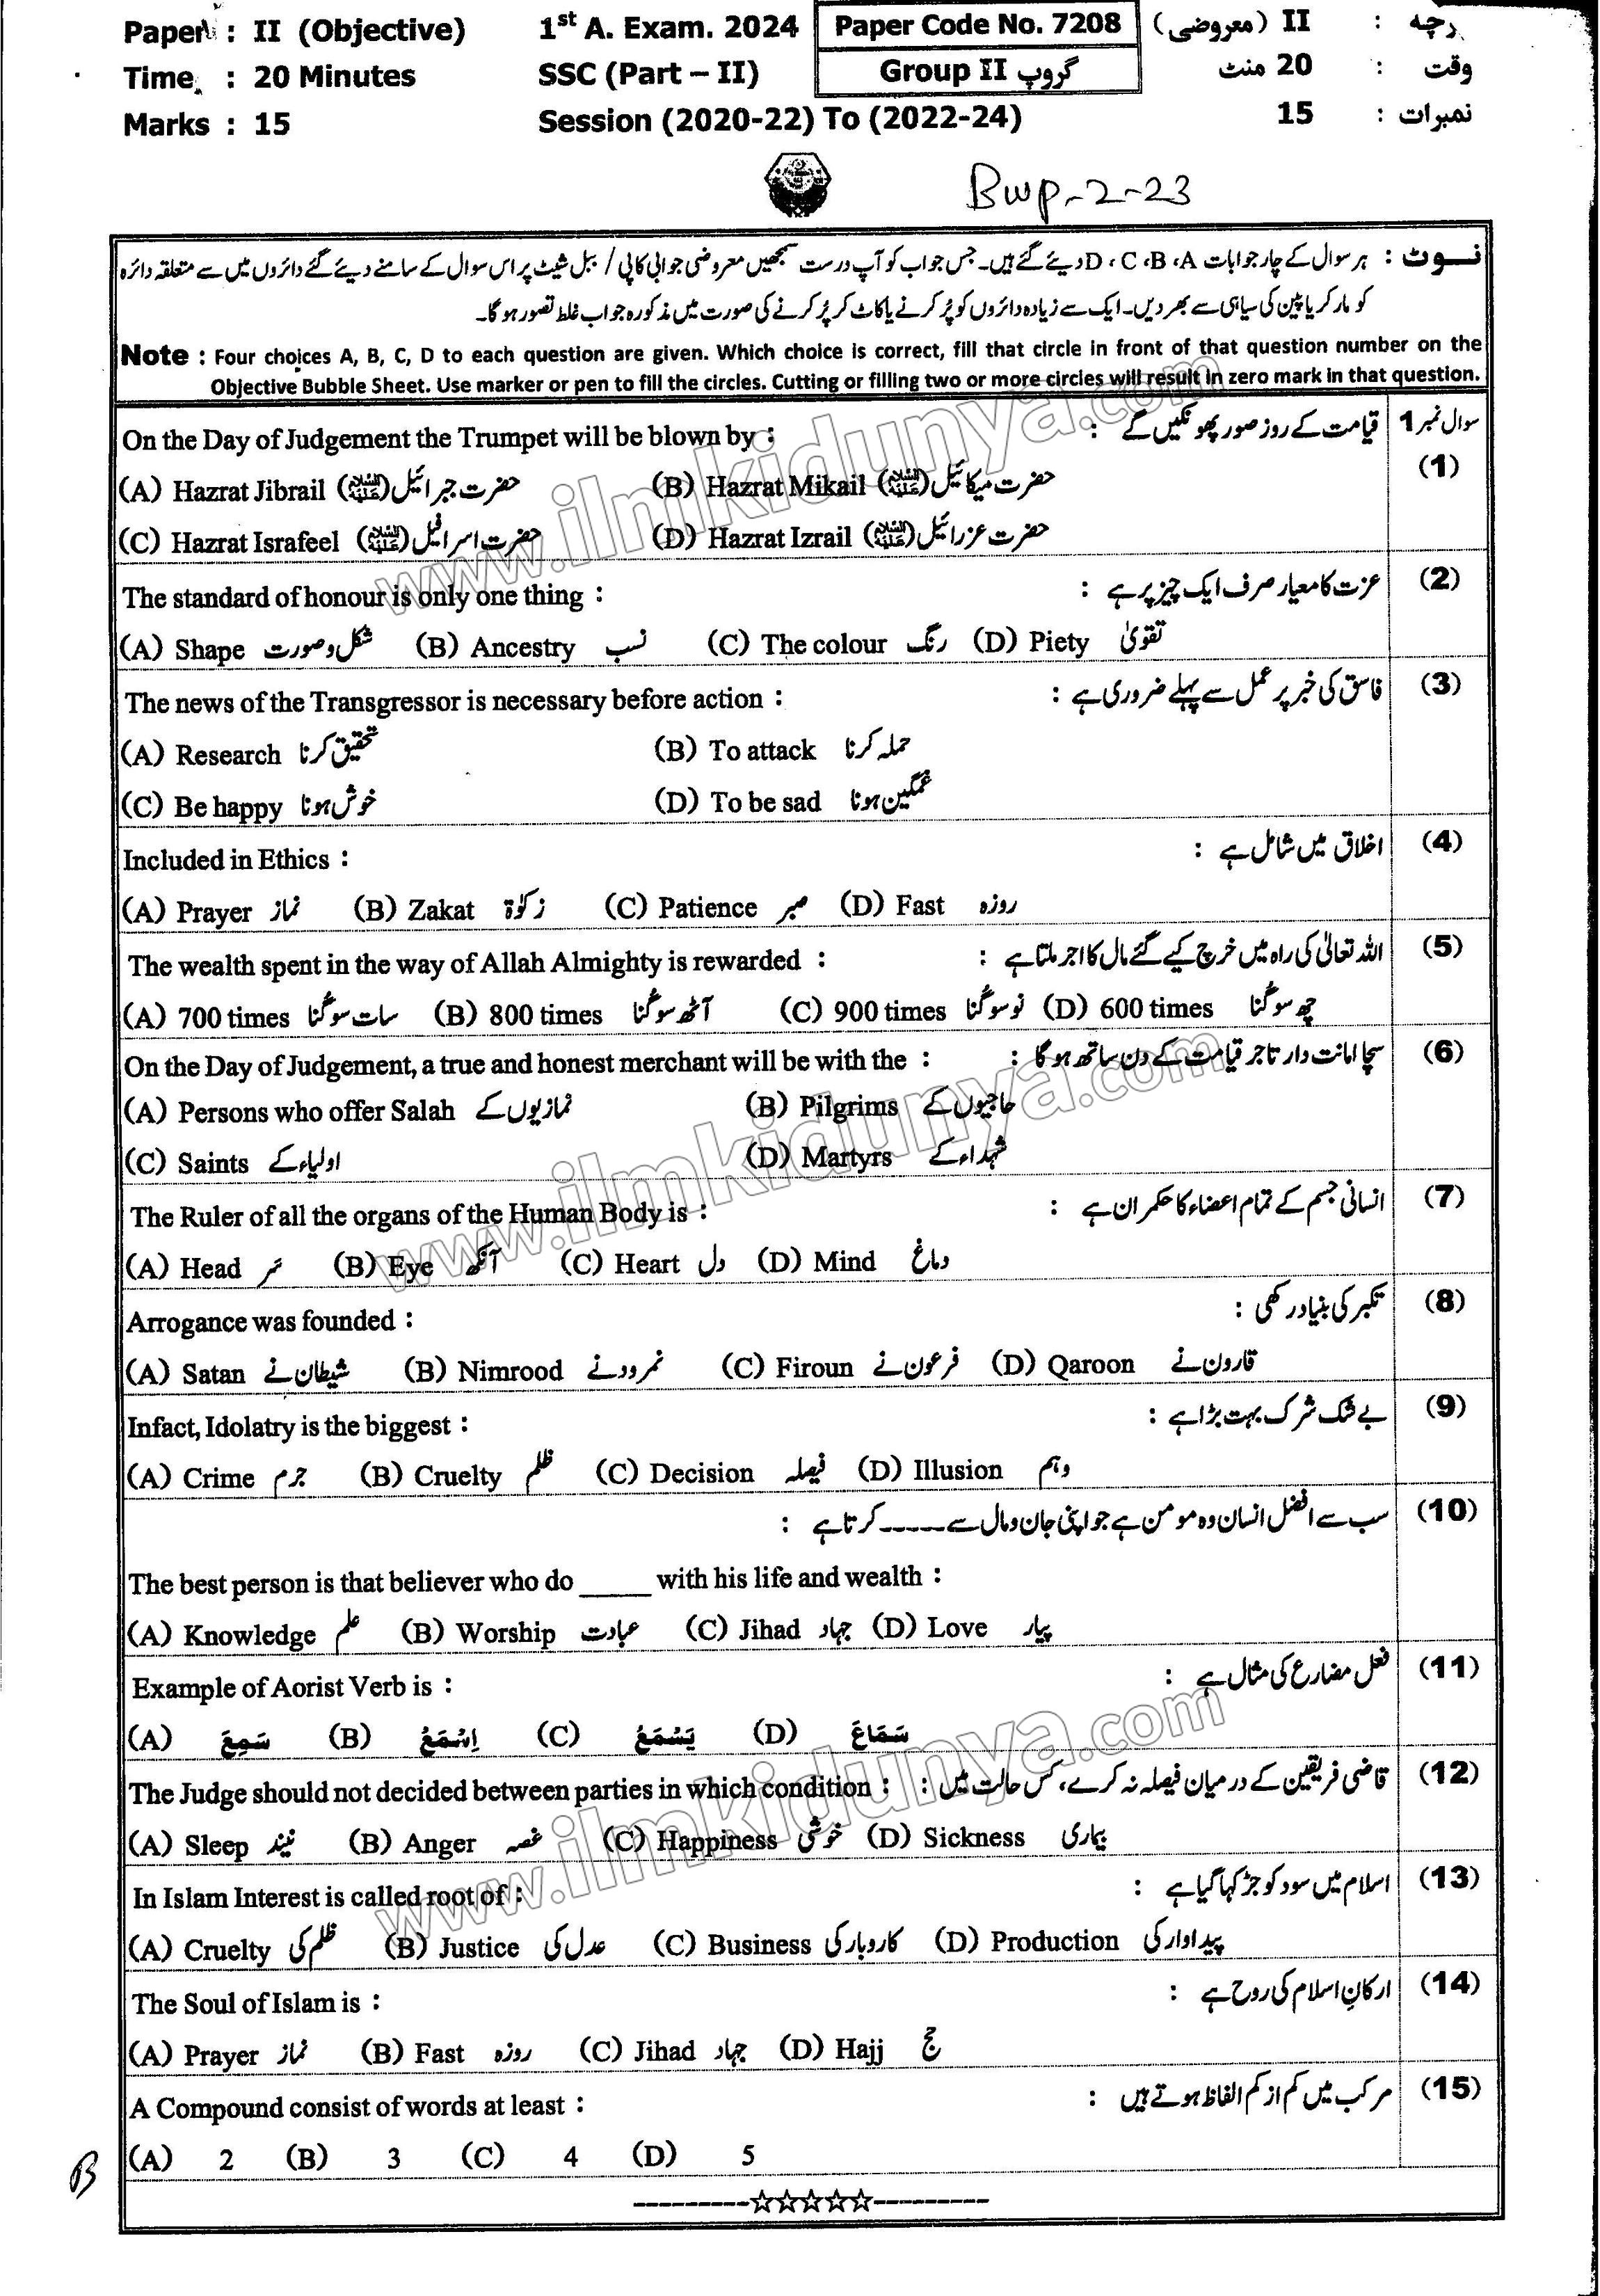 Paper : II (Objective) 1st A. Exam. 2024 Paper Code No. 7208 پرچہ : II (معروضی)
Time : 20 Minutes SSC (Part – II) Group II گروپ وقت : 20 منٹ
Marks : 15 Session (2020-22) To (2022-24) نمبرات : 15
Bwp-2-23
نوٹ : ہر سوال کے چار جوابات D ، C ،B ،A دیئے گئے ہیں۔ جس جواب کو آپ درست سمجھیں معروضی جوابی کاپی / ببل شیٹ پر اس سوال کے سامنے دیئے گئے دائروں میں سے متعلقہ دائرہ
کو مارکر یا پین کی سیاہی سے بھر دیں۔ ایک سے زیادہ دائروں کو پُر کرنے یا کاٹ کر پُر کرنے کی صورت میں مذکورہ جواب غلط تصور ہو گا۔
Note : Four choices A, B, C, D to each question are given. Which choice is correct, fill that circle in front of that question number on the
Objective Bubble Sheet. Use marker or pen to fill the circles. Cutting or filling two or more circles will result in zero mark in that question.
On the Day of Judgement the Trumpet will be blown by : قیامت کے روز صور پھونکیں گے : سوال نمبر 1
(1)
(A) Hazrat Jibrail (علیہ السلام) حضرت جبرائیل (B) Hazrat Mikail (علیہ السلام) حضرت میکائیل
(C) Hazrat Israfeel (علیہ السلام) حضرت اسرافیل (D) Hazrat Izrail (علیہ السلام) حضرت عزرائیل
The standard of honour is only one thing : عزت کا معیار صرف ایک چیز پر ہے : (2)
(A) Shape شکل و صورت (B) Ancestry نسب (C) The colour رنگ (D) Piety تقویٰ
The news of the Transgressor is necessary before action : فاسق کی خبر پر عمل سے پہلے ضروری ہے : (3)
(A) Research تحقیق کرنا (B) To attack حملہ کرنا
(C) Be happy خوش ہونا (D) To be sad غمگین ہونا
Included in Ethics : اخلاق میں شامل ہے : (4)
(A) Prayer نماز (B) Zakat زکوٰۃ (C) Patience صبر (D) Fast روزہ
The wealth spent in the way of Allah Almighty is rewarded : اللہ تعالیٰ کی راہ میں خرچ کیے گئے مال کا اجر ملتا ہے : (5)
(A) 700 times سات سو گنا (B) 800 times آٹھ سو گنا (C) 900 times نو سو گنا (D) 600 times چھ سو گنا
On the Day of Judgement, a true and honest merchant will be with the : سچا امانت دار تاجر قیامت کے دن ساتھ ہو گا : (6)
(A) Persons who offer Salah نمازیوں کے (B) Pilgrims حاجیوں کے
(C) Saints اولیاء کے (D) Martyrs شہداء کے
The Ruler of all the organs of the Human Body is : انسانی جسم کے تمام اعضاء کا حکمران ہے : (7)
(A) Head سر (B) Eye آنکھ (C) Heart دل (D) Mind دماغ
Arrogance was founded : تکبر کی بنیاد رکھی : (8)
(A) Satan شیطان نے (B) Nimrood نمرود نے (C) Firoun فرعون نے (D) Qaroon قارون نے
Infact, Idolatry is the biggest : بے شک شرک بہت بڑا ہے : (9)
(A) Crime جرم (B) Cruelty ظلم (C) Decision فیصلہ (D) Illusion وہم
سب سے افضل انسان وہ مومن ہے جو اپنی جان و مال سے ----- کرتا ہے : (10)
The best person is that believer who do _____ with his life and wealth :
(A) Knowledge علم (B) Worship عبادت (C) Jihad جہاد (D) Love پیار
Example of Aorist Verb is : فعل مضارع کی مثال ہے : (11)
(A) سَمِعَ (B) اِسْمَعُ (C) يَسْمَعُ (D) سَمَاعَ
The Judge should not decided between parties in which condition : قاضی فریقین کے درمیان فیصلہ نہ کرے، کس حالت میں : (12)
(A) Sleep نیند (B) Anger غصہ (C) Happiness خوشی (D) Sickness بیماری
In Islam Interest is called root of : اسلام میں سود کو جڑ کہا گیا ہے : (13)
(A) Cruelty ظلم کی (B) Justice عدل کی (C) Business کاروبار کی (D) Production پیداوار کی
The Soul of Islam is : ارکانِ اسلام کی روح ہے : (14)
(A) Prayer نماز (B) Fast روزہ (C) Jihad جہاد (D) Hajj حج
A Compound consist of words at least : مرکب میں کم از کم الفاظ ہوتے ہیں : (15)
(A) 2 (B) 3 (C) 4 (D) 5
B
---------☆☆☆☆☆---------
www.ilmkidunya.com
www.ilmkidunya.com
www.ilmkidunya.com